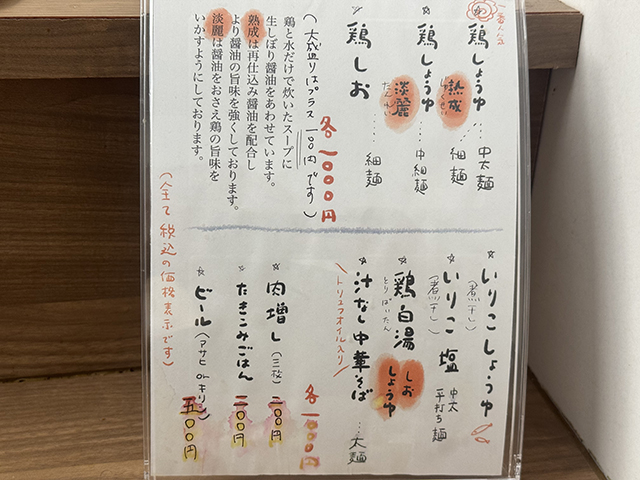 一番人気
鶏しょうゆ
熟成
じゅくせい
……中太麺
細麺
鶏しょうゆ
淡麗
たんれい
……中細麺
鶏しお……細麺
各一〇〇〇円
(大盛りはプラス一〇〇円です)
鶏と水だけで炊いたスープに
生しぼり醤油をあわせています。
熟成は再仕込み醤油を配合し
より醤油の旨味を強くしております。
淡麗は醤油をおさえ鶏の旨味を
いかすようにしております。
いりこしょうゆ
(煮干し)
いりこ塩
(煮干し)
中太
平打ち麺
鶏白湯
とりぱいたん
しお
しょうゆ
汁なし中華そば……太麺
トリュフオイル入り
各一〇〇〇円
肉増し(三枚)二〇〇円
たきこみごはん二〇〇円
ビール(アサヒorキリン)五〇〇円
(全て税込の価格表示です)